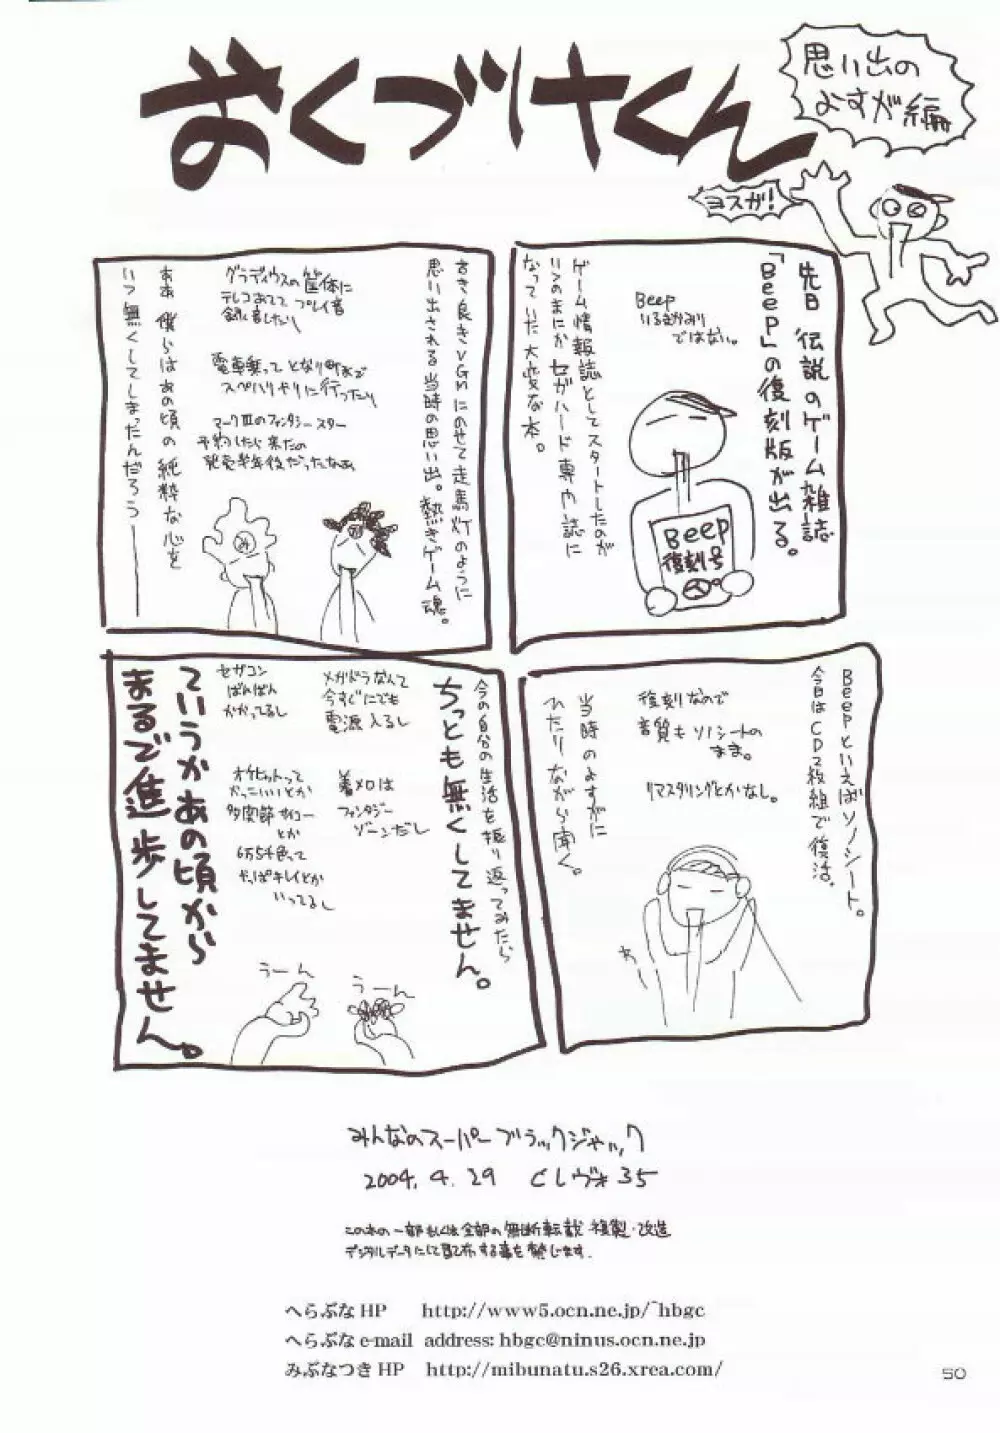 おくづけくん
思い出の
よすが編
ヨスガ!
先日、伝説のゲーム雑誌
「Beep」の復刻版が出る。
Beep
いるまかみり
ではない。
ゲーム情報誌としてスタートしたのが
いつのまにかセガハード専門誌に
なっていた大変な本。
Beep
復刻号
古き良きVGMにのせて走馬灯のように
思い出される当時の思い出。熱きゲーム魂。
グラディウスの筐体に
テレコあてて プレイ音
録音したり
電車乗って となり町まで
スペハリやりに行ったり
マークⅢのファンタシースター
予約したら来たの
発売半年後だったなぁ
ああ 僕らはあの頃の純粋な心を
いつ無くしてしまったんだろう――
Beepといえばソノシート。
今日はCD2枚組で復活。
復刻なので
音質もソノシートの
まま。
リマスタリングとかなし。
当時のよすがに
ひたりながら聞く。
今の自分の生活を振り返ってみたら
ちっとも無くしてません。
メガドラなんて
今すぐにでも
電源入るし
着メロは
ファンタジー
ゾーンだし
セガコン
ばんばん
かかってるし
オケヒットって
かっこいいとか
多関節サイコー
とか
6万5千色って
やっぱキレイとか
いってるし
うーん
うーん
ていうかあの頃から
まるで進歩してません。
みんなのスーパーブラックジャック
2004.4.29 Cレヴォ35
この本の一部もしくは全部の無断転載・複製・改造
デジタルデータにして配布する事を禁じます.
へらぶな HP http://www5.ocn.ne.jp/~hbgc
へらぶな e-mail address: hbgc@ninus.ocn.ne.jp
みぶなつき HP http://mibunatu.s26.xrea.com/
50